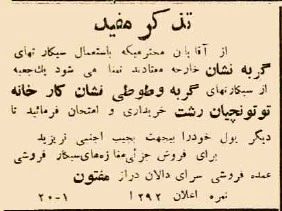 تذکر مفید
از آقایان محترمیکه باستعمال سیکارتهای
گربه نشان خارجه معتادند تمنا می شود یك جعبه
از سیکارتهای گربه وطوطی نشان کار خانه
توتونچیان رشت خریداری و امتحان فرمائید تا
دیگر پول خودرا بیجهت بجیب اجنبی نریزید
برای فروش جزئی مغازه های سیکار فروشی
عمده فروشی سرای دالان دراز مفتون
نمره اعلان ۱۳۹۲ ۱-۲۰